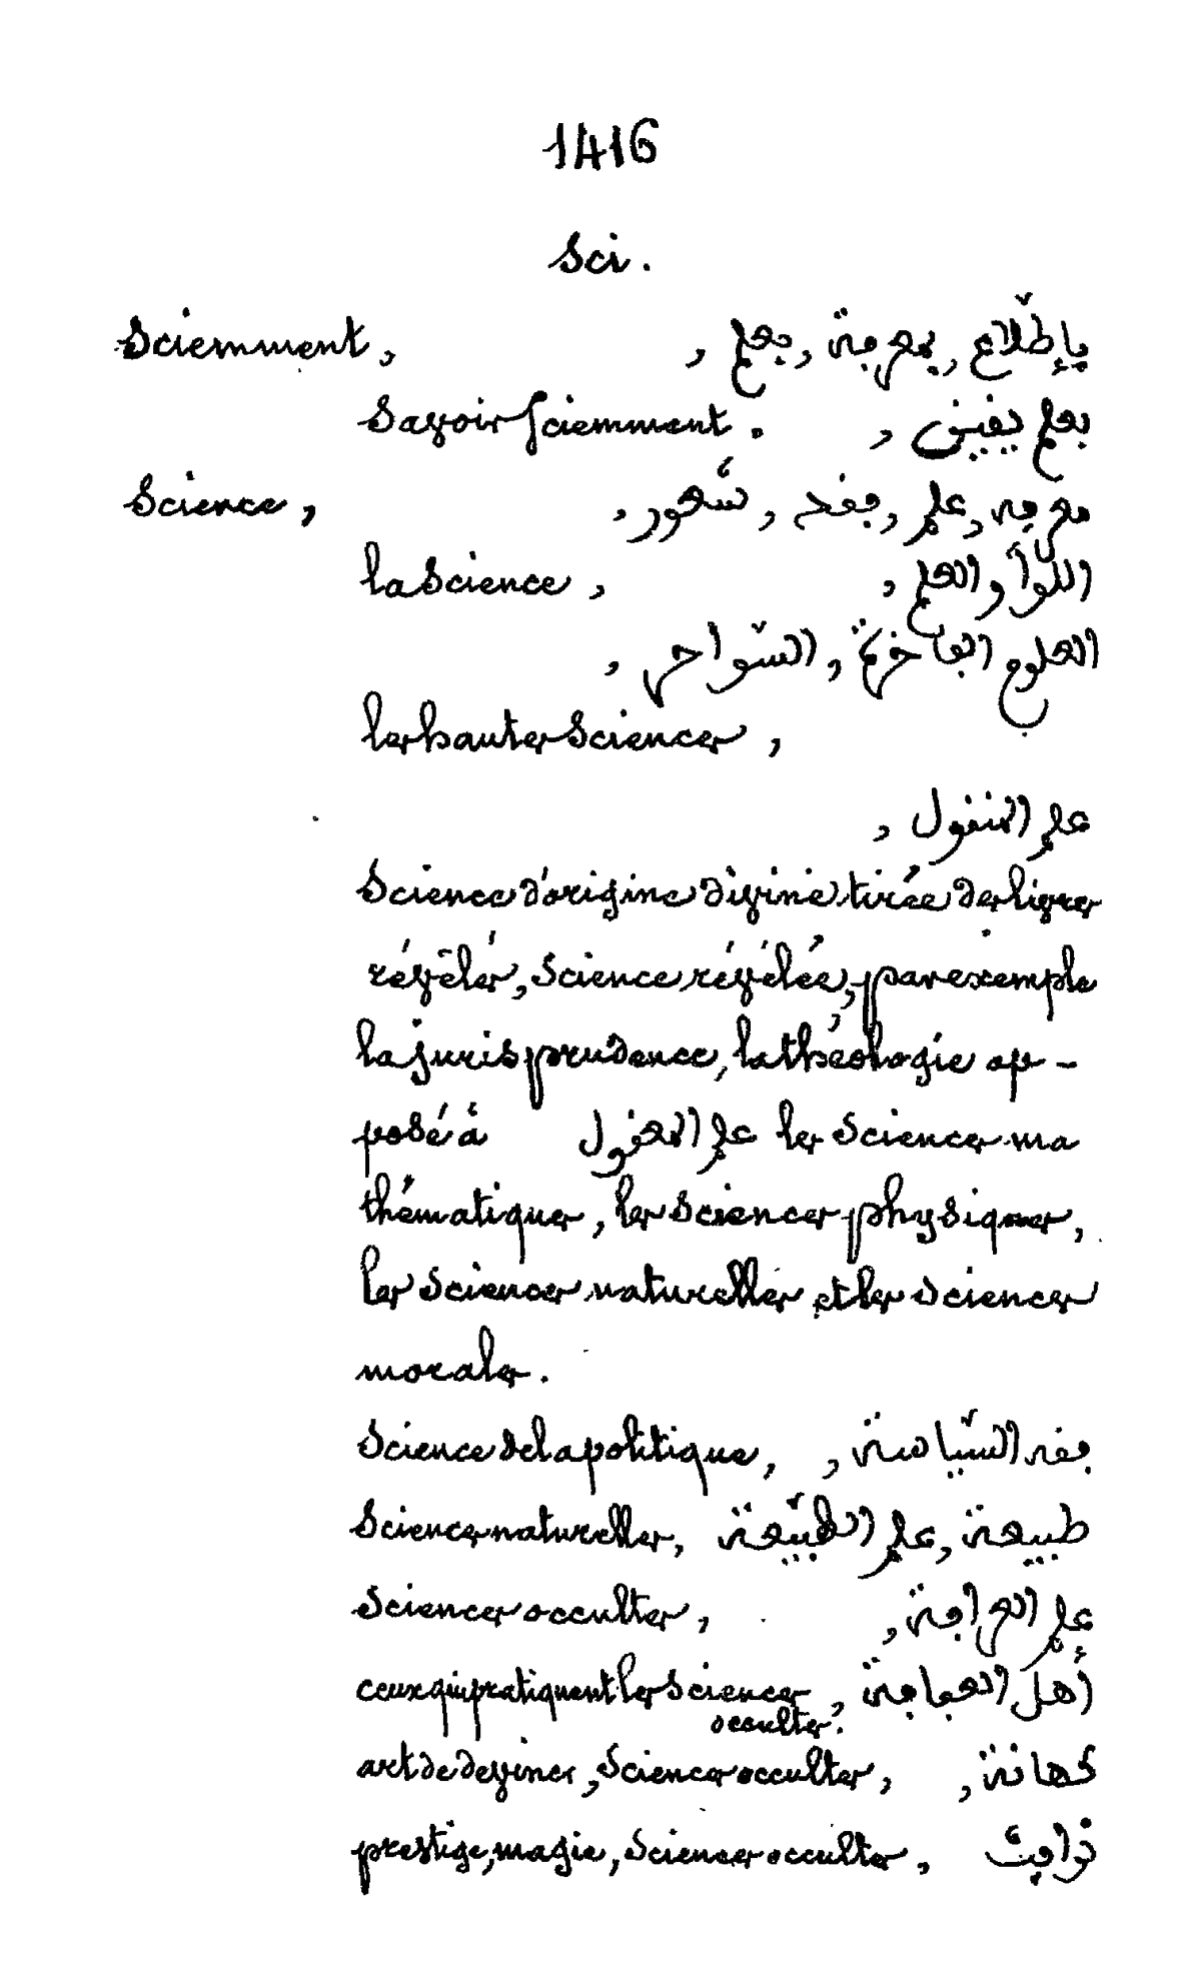 1416
Sci.
Sciemment, بإطّلاع, بمعرفة, بعلم,
Savoir sciemment. بعلم يقين,
Science, معرفة, علم, فقه, شعور,
la Science, والعلم,
العلوم الفاخرة,
les hautes Sciences,
علم المنقول,
Science d'origine divine, tirée des livres
révélés, science révélée, par exemple
la jurisprudence, la théologie op-
posé à علم المعقول les sciences ma
thématiques, les sciences physiques,
les sciences naturelles et les sciences
morales.
Science de la politique, فقه السّياسة,
Sciences naturelles, طبيعة, علم الطّبيعة
Sciences occultes, علم العرافة,
ceux qui pratiquent les sciences occultes. أهل
art de deviner, Sciences occultes, كهانة,
prestige, magie, sciences occultes,